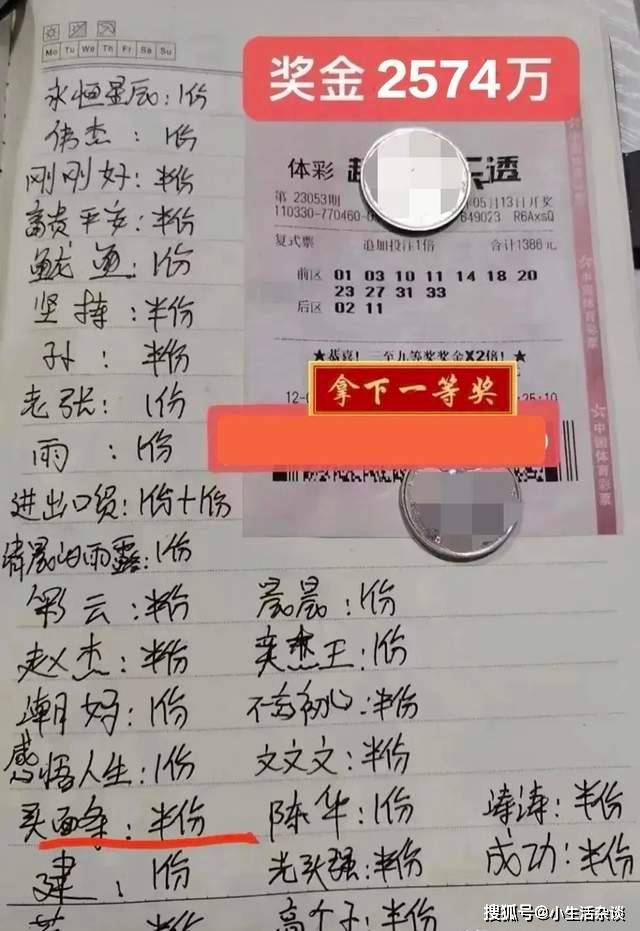 Mo Tu We Th Fr Sa Su
奖金2574万
永恒星辰：1份
伟杰：1份
刚刚好：半份
富贵平安：半份
1份
坚持：半份
孙：半份
老张：1份
雨：1份
进出口贸：1份+1份
的雨露：1份
彩云：半份 晨晨：1份
赵杰：半份 奕杰王：1份
潮妈：1份 不忘初心：半份
感悟人生：1份 文文文：半份
买面条：半份 陈华：1份 涛涛：半份
建：1份 光头强：半份 成功：半份
半份 高个子：半份
体彩 透
第23053期 05月13日开奖
110330-770460- B49023 R6AxsQ
复式票 追加投注1倍 合计1386元
前区 01 03 10 11 14 18 20
23 27 31 33
后区 02 11
★恭喜！一至九等奖奖金X2倍！★
拿下一等奖
中国体育彩票
搜狐号@小生活杂谈